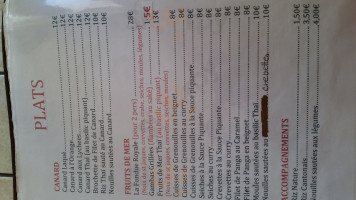 PLATS
CANARD
Canard Laqué 12€
Canard à l'Orange 12€
Canard aux Lychees 12€
Canard Thaï (au basilic piquant) 12€
Brochette de Filet de Canard 10€
Riz Thaï Sauté au Canard 10€
Nouilles sautées au Canard 10€
FRUITS DE MER
La Fondue Royale (pour 2 pers) 28€
15€
Gambas Grillées 13€
Fruits de Mer Thaï (au basilic piquant) 8€
Cuisses de Grenouilles en beignet 8€
Cuisses de Grenouilles au curry 8€
Cuisses de Grenouilles à la Sauce piquante 8€
Seiches à la Sauce Piquante 8€
Seiches au curry 8€
Crevettes à la Sauce Piquante 8€
Crevettes au curry 8€
Filet de Panga au Caramel 8€
Filet de Panga en beignet 8€
Moules sautées au basilic Thaï 10€
Nouilles sautées au 10€
ACCOMPAGNEMENTS
Riz Nature 1,50€
Riz Cantonais 3,50€
Nouilles sautées aux légumes 4,00€